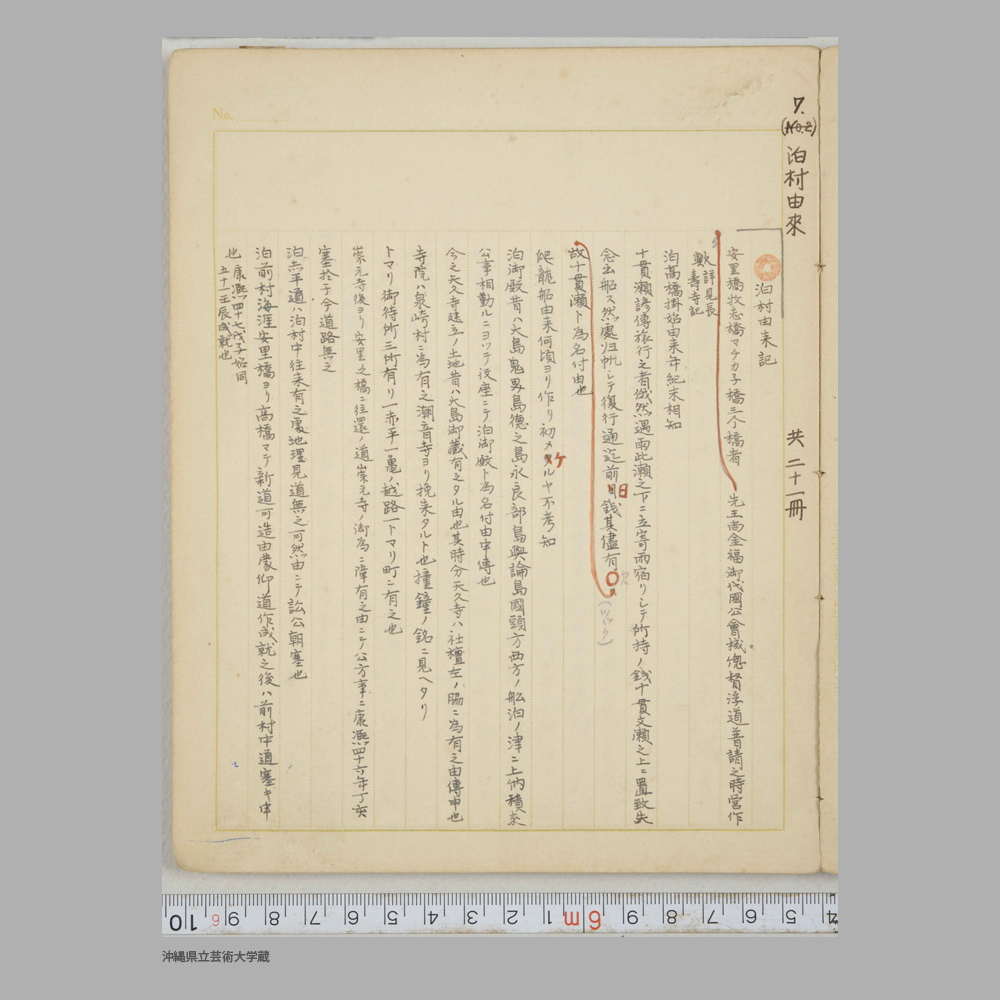 7.
(No.2)
泊村由來 共二十一冊
No.
泊村由来記
安里橋牧志橋マチカ子橋三个橋者 先王尚金福御代國公會城愧督浮道普請之時営作
歟 詳見長
寿寺記
泊髙橋掛始由来年紀未相知
十貫瀬諺傳旅行之者俄然遇雨此瀬之下ニ立寄雨宿リシテ所持ノ銭十貫文瀬之上ニ置致失
念出船ス然處归帆シテ復行通迄前日銭其儘有
(ツヅク)
故十貫瀬ト為名付由也
爬龍船由来何頃ヨリ作リ初メケルヤ不考知
泊御殿昔ハ大島鬼界島德之島永良部島與論島國頭方西方ノ船泊ノ津ニ上納積来
公事相勤ルニヨツテ後座ニテ泊御殿ト為名付由申傳也
今之天久寺建立ノ土地昔ハ大島御蔵有之タル由也其時分天久寺ハ社壇左ノ脇ニ為有之由傳申也
寺院ハ泉崎村ニ為有之潮音寺ヨリ挽来タルト也撞鐘ノ銘ニ見ヘタリ
トマリ御待所三所有リ一赤平一亀ノ越路一トマリ町ニ有之也
崇元寺後ヨリ安里之橋ニ往還ノ道崇元寺ノ御為ニ障有之由ニテ公方事ニ康凞四十六年丁亥
塞於于今道路無之
泊赤平道ハ泊村中往来有之處地理見道無之可然由ニテ訟公朝塞也
泊前村海涯安里橋ヨリ髙橋マテ新道可造由蒙仰道作成就之後ハ前村中道塞キ申
也 康凞四十七戊子始同
五十一壬辰成就也
10 6 9 8 7 6 5 4 3 2 1 6m 9 8 7 6 5 4
沖縄県立芸術大学蔵